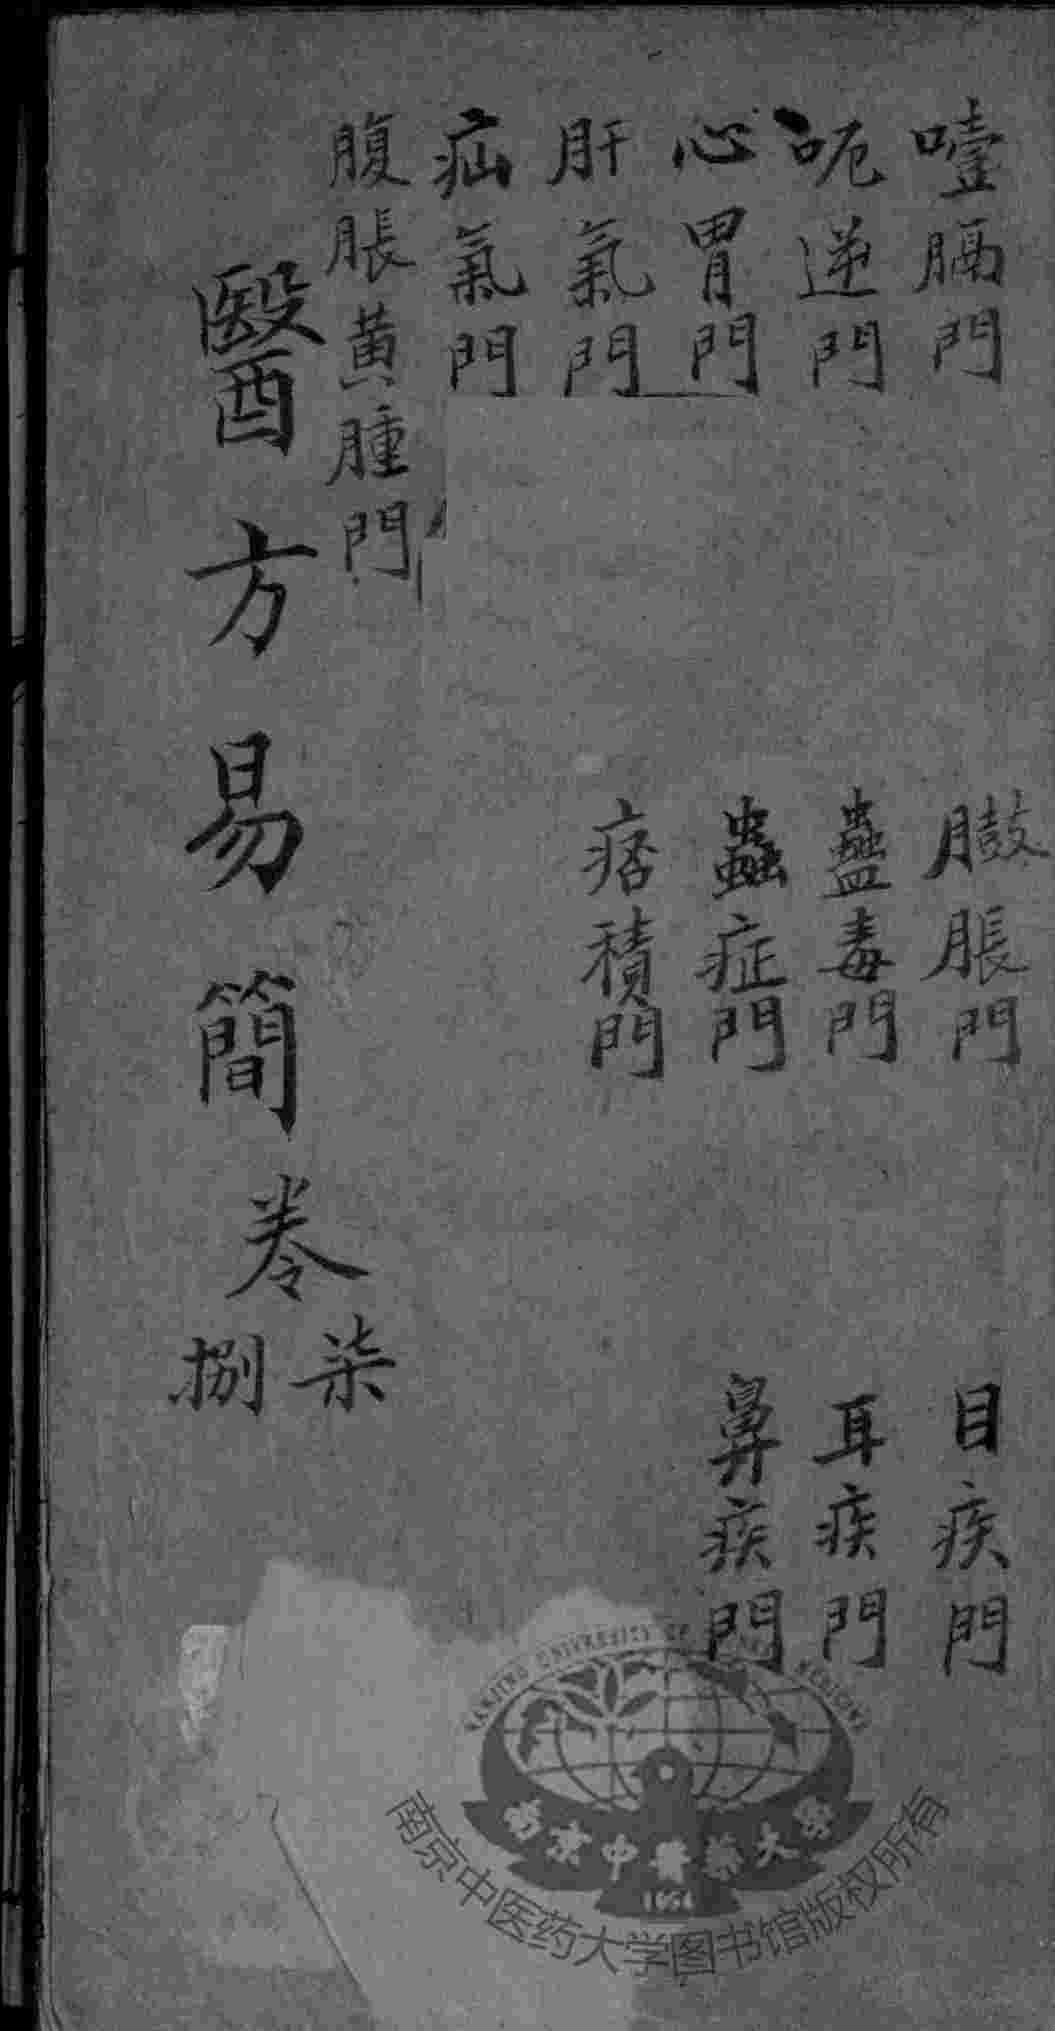 噎膈門
呃逆門
心胃門
肝氣門
疝氣門
腹脹黄腫門
臌脹門
蠱毒門
蟲症門
痞積門
目疾門
耳疾門
鼻疾門
醫方易簡卷
柒
捌
南京中醫藥大學
1954
南京中医药大学图书馆版权所有